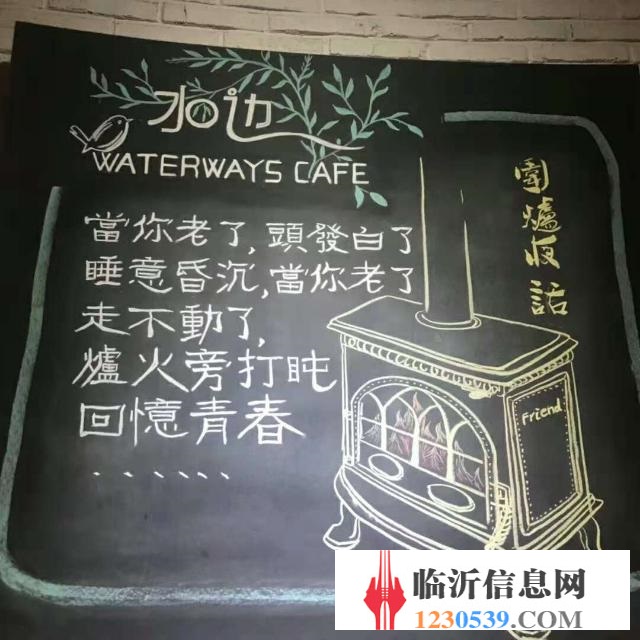 水边
WATERWAYS CAFE
當你老了,頭發白了
睡意昏沉,當你老了
走不動了,
爐火旁打盹
回憶青春
......
圍爐夜話
Friend
临沂信息网
1230539.com